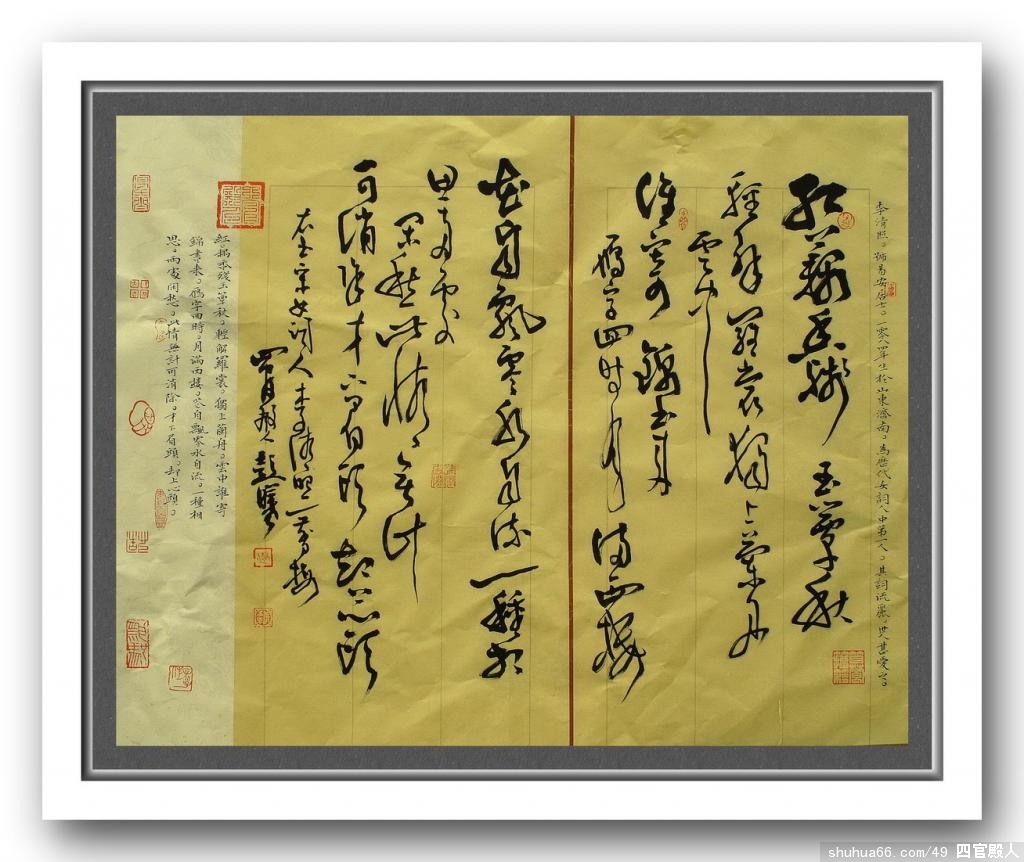 李清照。號易安居士。一零八四年生於山東濟南。為歷代女詞人中第一人。其詞流麗。世甚愛之。
紅藕香殘 玉簟秋
輕解羅裳獨上蘭舟
雲中
誰寄 錦書來
雁字回時月 滿西樓
花自飄零水自流一種相
思兩處
閑愁此情無計
可消除才下眉頭 却上心頭
右書宋女詞人李清照一剪梅
四官殿人
紅藕香殘玉簟秋。輕解羅裳。獨上蘭舟。雲中誰寄
錦書來。雁字回時。月滿西樓。花自飄零水自流。一種相
思。兩處閑愁。此情無計可消除。才下眉頭。却上心頭。
shuhua66.com/49 四官殿人